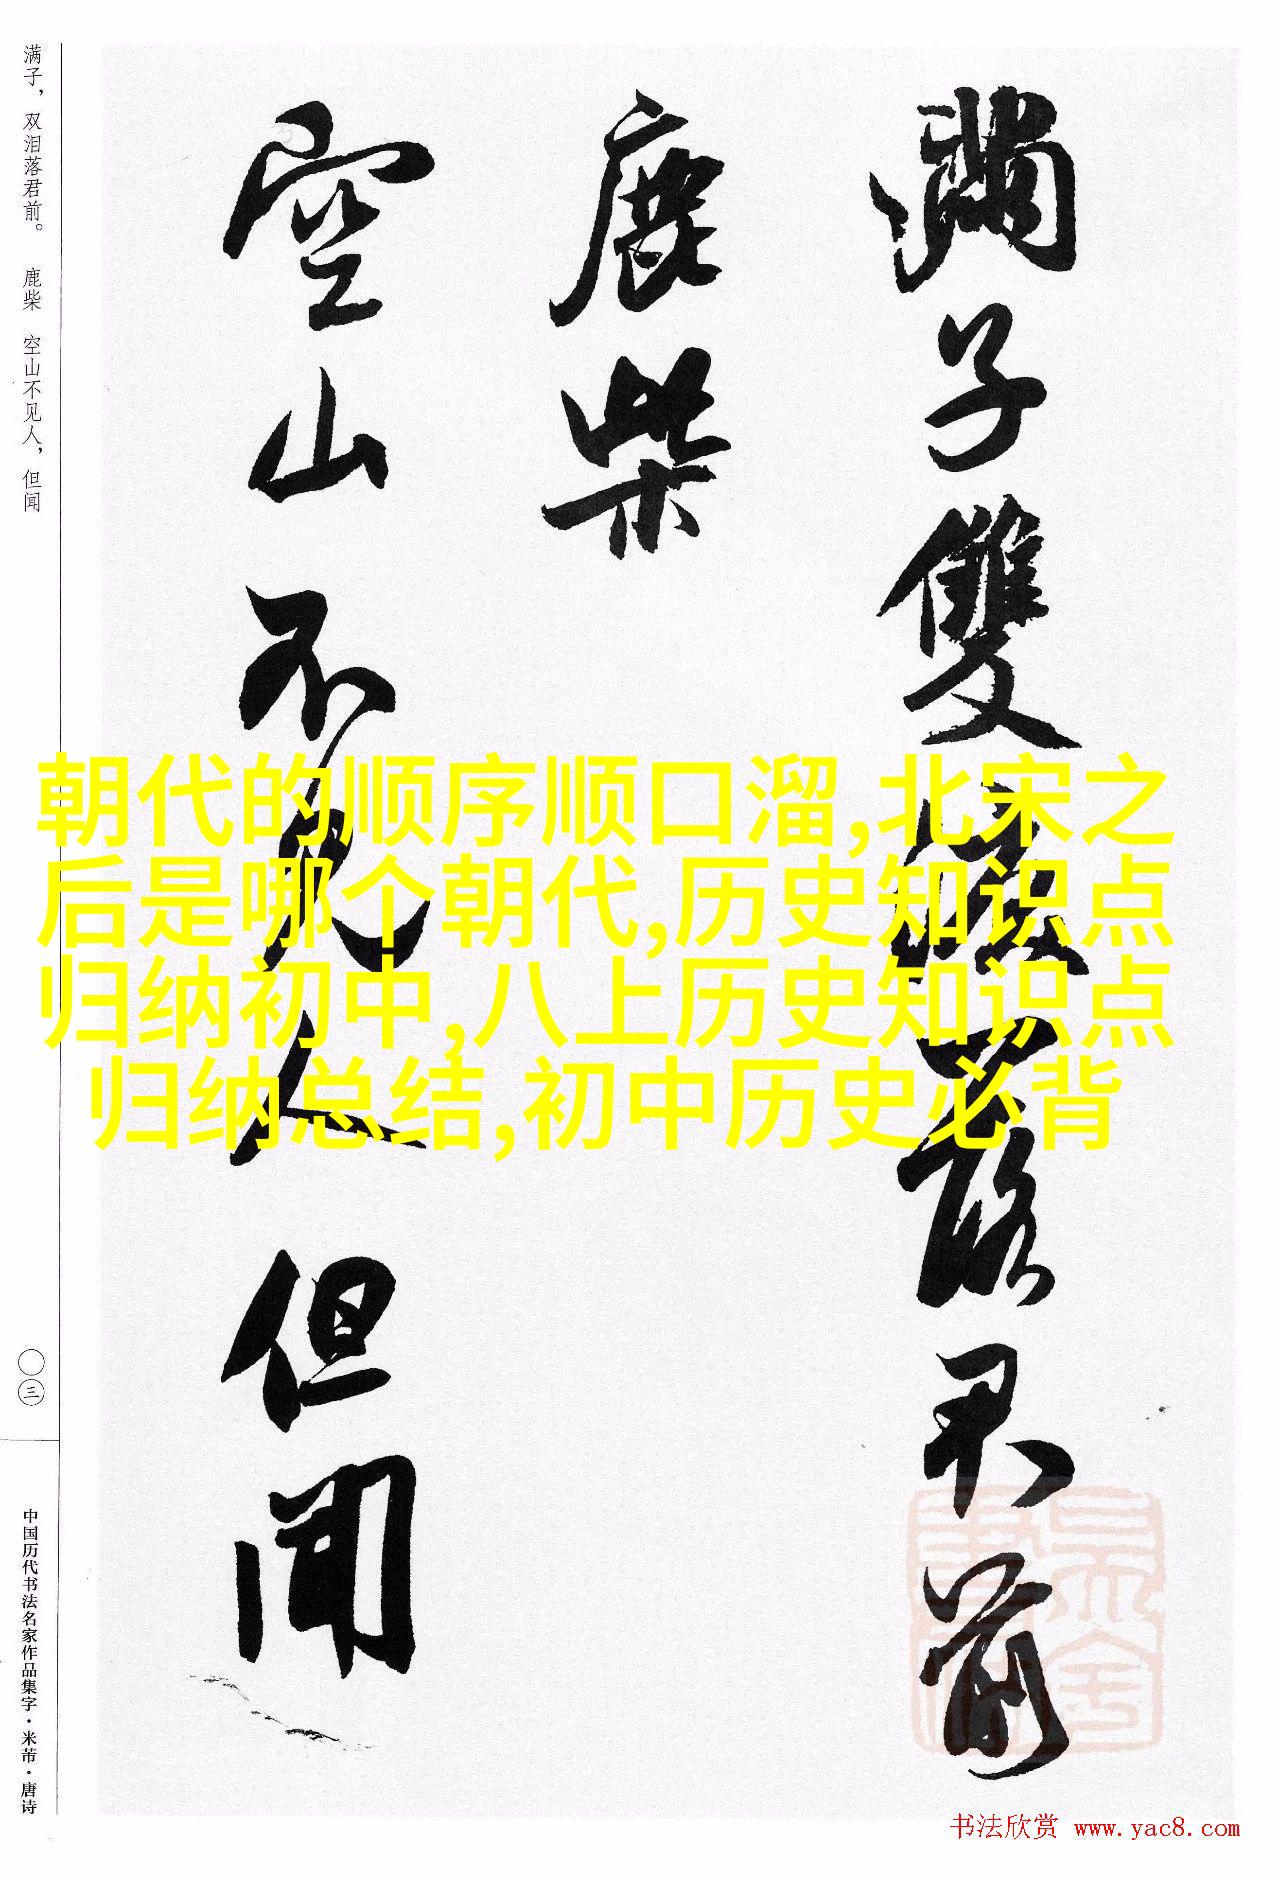 滿子雙淚落君前
鹿柴
空山不見人但聞
满子，双泪落君前。 鹿柴 空山不见人，但闻
〇三
中国历代书法名家作品集字·米芾·唐诗
朝代的顺序顺口溜,北宋之
后是哪个朝代,历史知识点
归纳初中,八上历史知识点
归纳总结,初中历史必背
书法欣赏 www.yac8.com